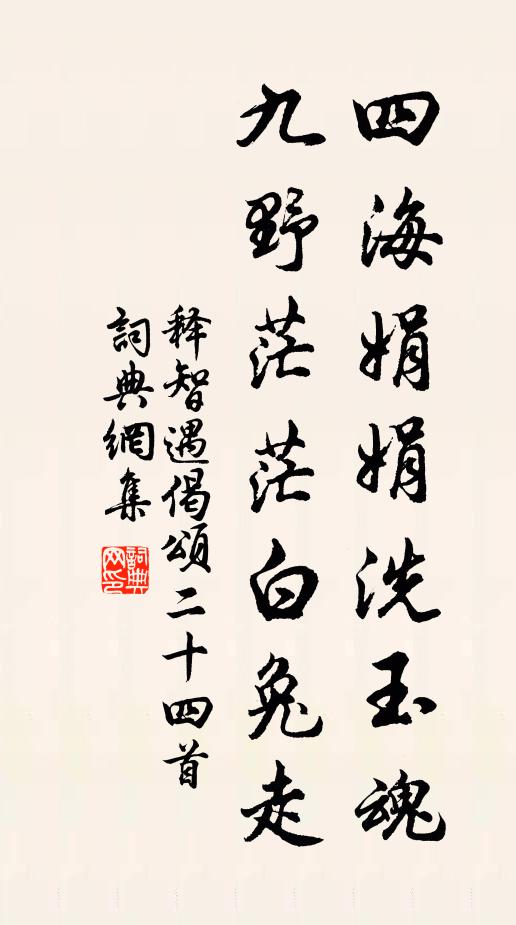 四海娟娟洗玉魂
九野茫茫白兔走
释智遇偈頌二十四首
詞典網集
詞典网印